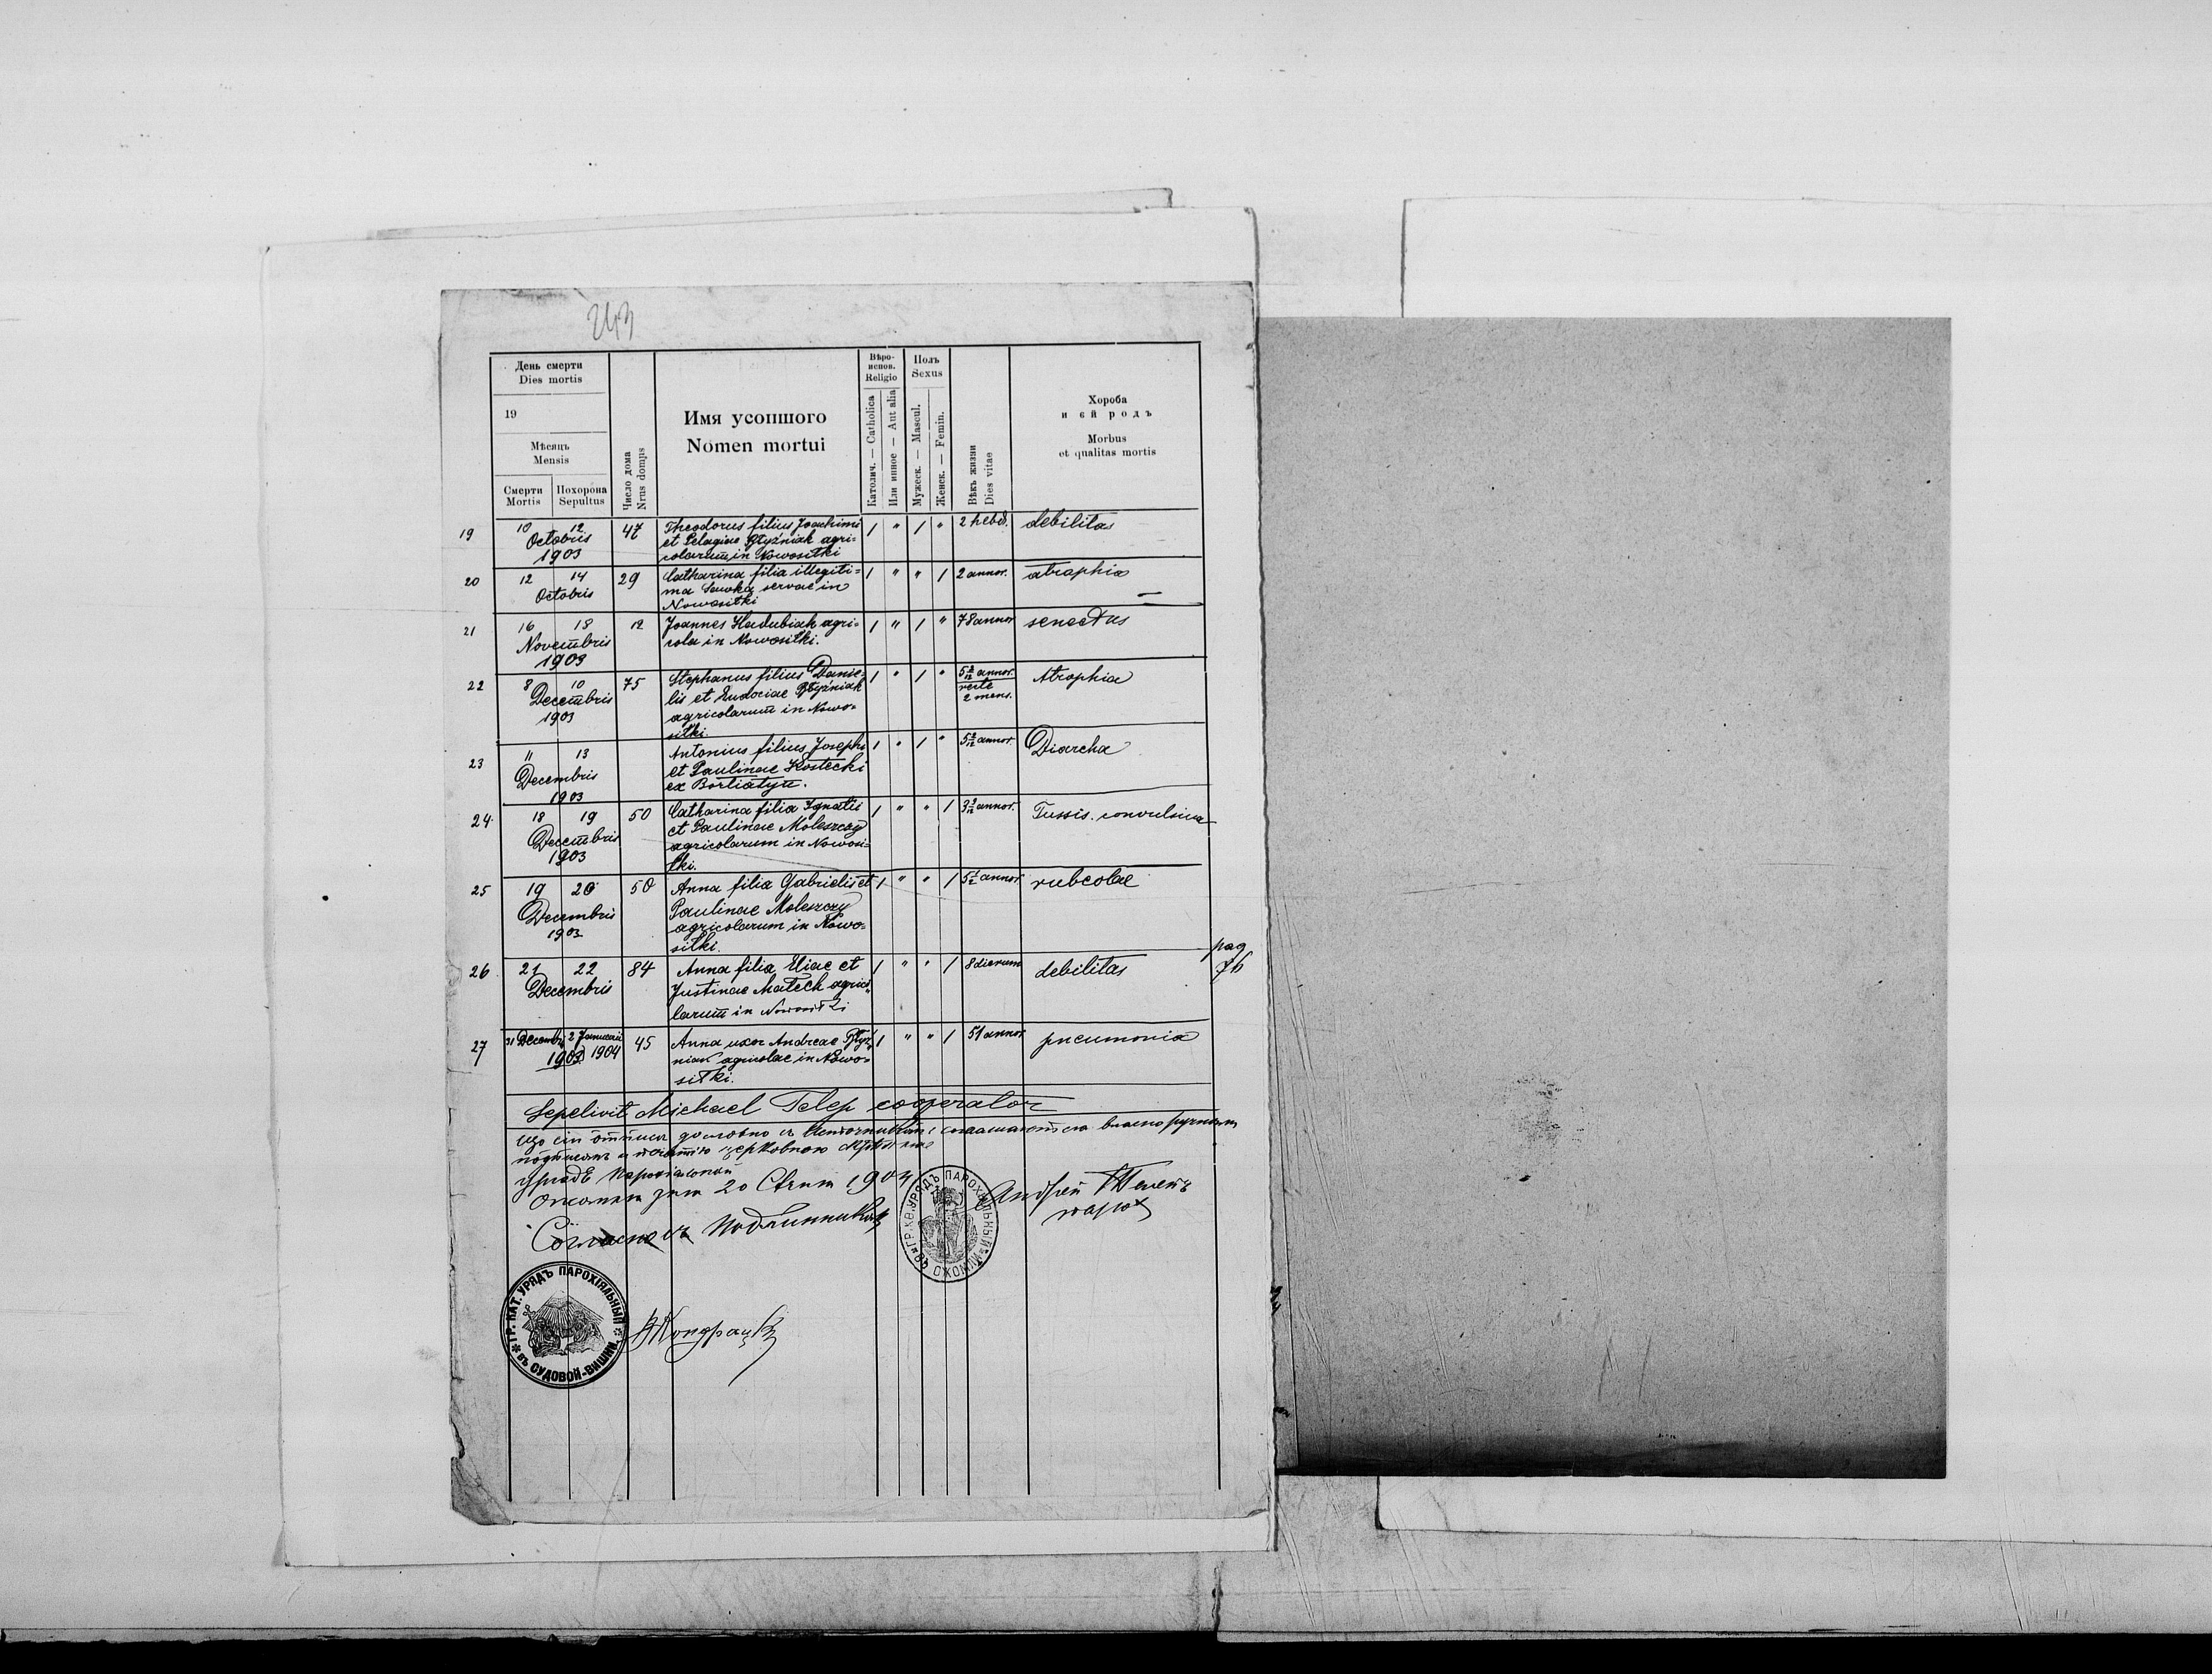 243
День смерти
Dies mortis
19
Мѣсяцъ
Mensis
Смерти
Mortis
Похорона
Sepultus
Число дома
Nrus domus
Имя усопшого
Nomen mortui
Вѣро-
испов.
Religio
Католич. — Catholica
Или инное — Aut alia
Полъ
Sexus
Мужеск. — Mascul.
Женск. — Femin.
Вѣкъ жизни
Dies vitae
Хороба
и єй родъ
Morbus
et qualitas mortis
19 10 12 47 Theodorus filius Joachimi 1 " 1 " 2 hebd. debilitas
Octobris et Pelagiae agri=
1903 colarum in Nowosiłki
20 12 14 29 Catharina filia illegiti= 1 " " 1 2 annor. atrophia
Octobris ma servae in
Nowosiłki
21 16 18 12 Joannes Hadubiak agri= 1 " 1 " 78 annor senectus
Novembris cola in Nowosiłki.
1903
22 8 10 75 Stephanus filius Danie= 1 " 1 " 5 2/12 annor. Atrophia
Decembris lis et Eudociae recte
1903 agricolarum in Nowo= 2 mens.
siłki.
23 11 13 Antonius filius Josephi 1 " 1 " 5 2/12 annor. Diarcha
Decembris et Paulinae Kostecki
1903 ex Bortiatyn.
24 18 19 50 Catharina filia Ignatii 1 " " 1 annor. Tussis convulsiva
Decembris et Paulinae Moleszczy
1903 agricolarum in Nowosi=
łki.
25 19 20 50 Anna filia Gabrielis et 1 " " 1 5 1/2 annor rubeolae
Decembris Paulinae Moleszczy
1903 agricolarum in Nowo=
siłki.
pag
76
26 21 22 84 Anna filia Eliae et 1 " " 1 8 dierum debilitas
Decembris Justinae Matech agrico=
larum in Nowosiłki
27 31 Decembr. 2 Januarii 45 Anna uxor Andreae 1 " " 1 51 annor pneumonia
1903 1904 agricolae in Nowo=
siłki.
Sepelivit Michael Telep cooperator
20 1904
Андрей Телепъ
парох
Согласно съ подлинникомъ
ГР. КАТ. УРЯДЪ ПАРОХІЯЛЬНЫЙ
въ СУДОВОЙ-ВИШНИ